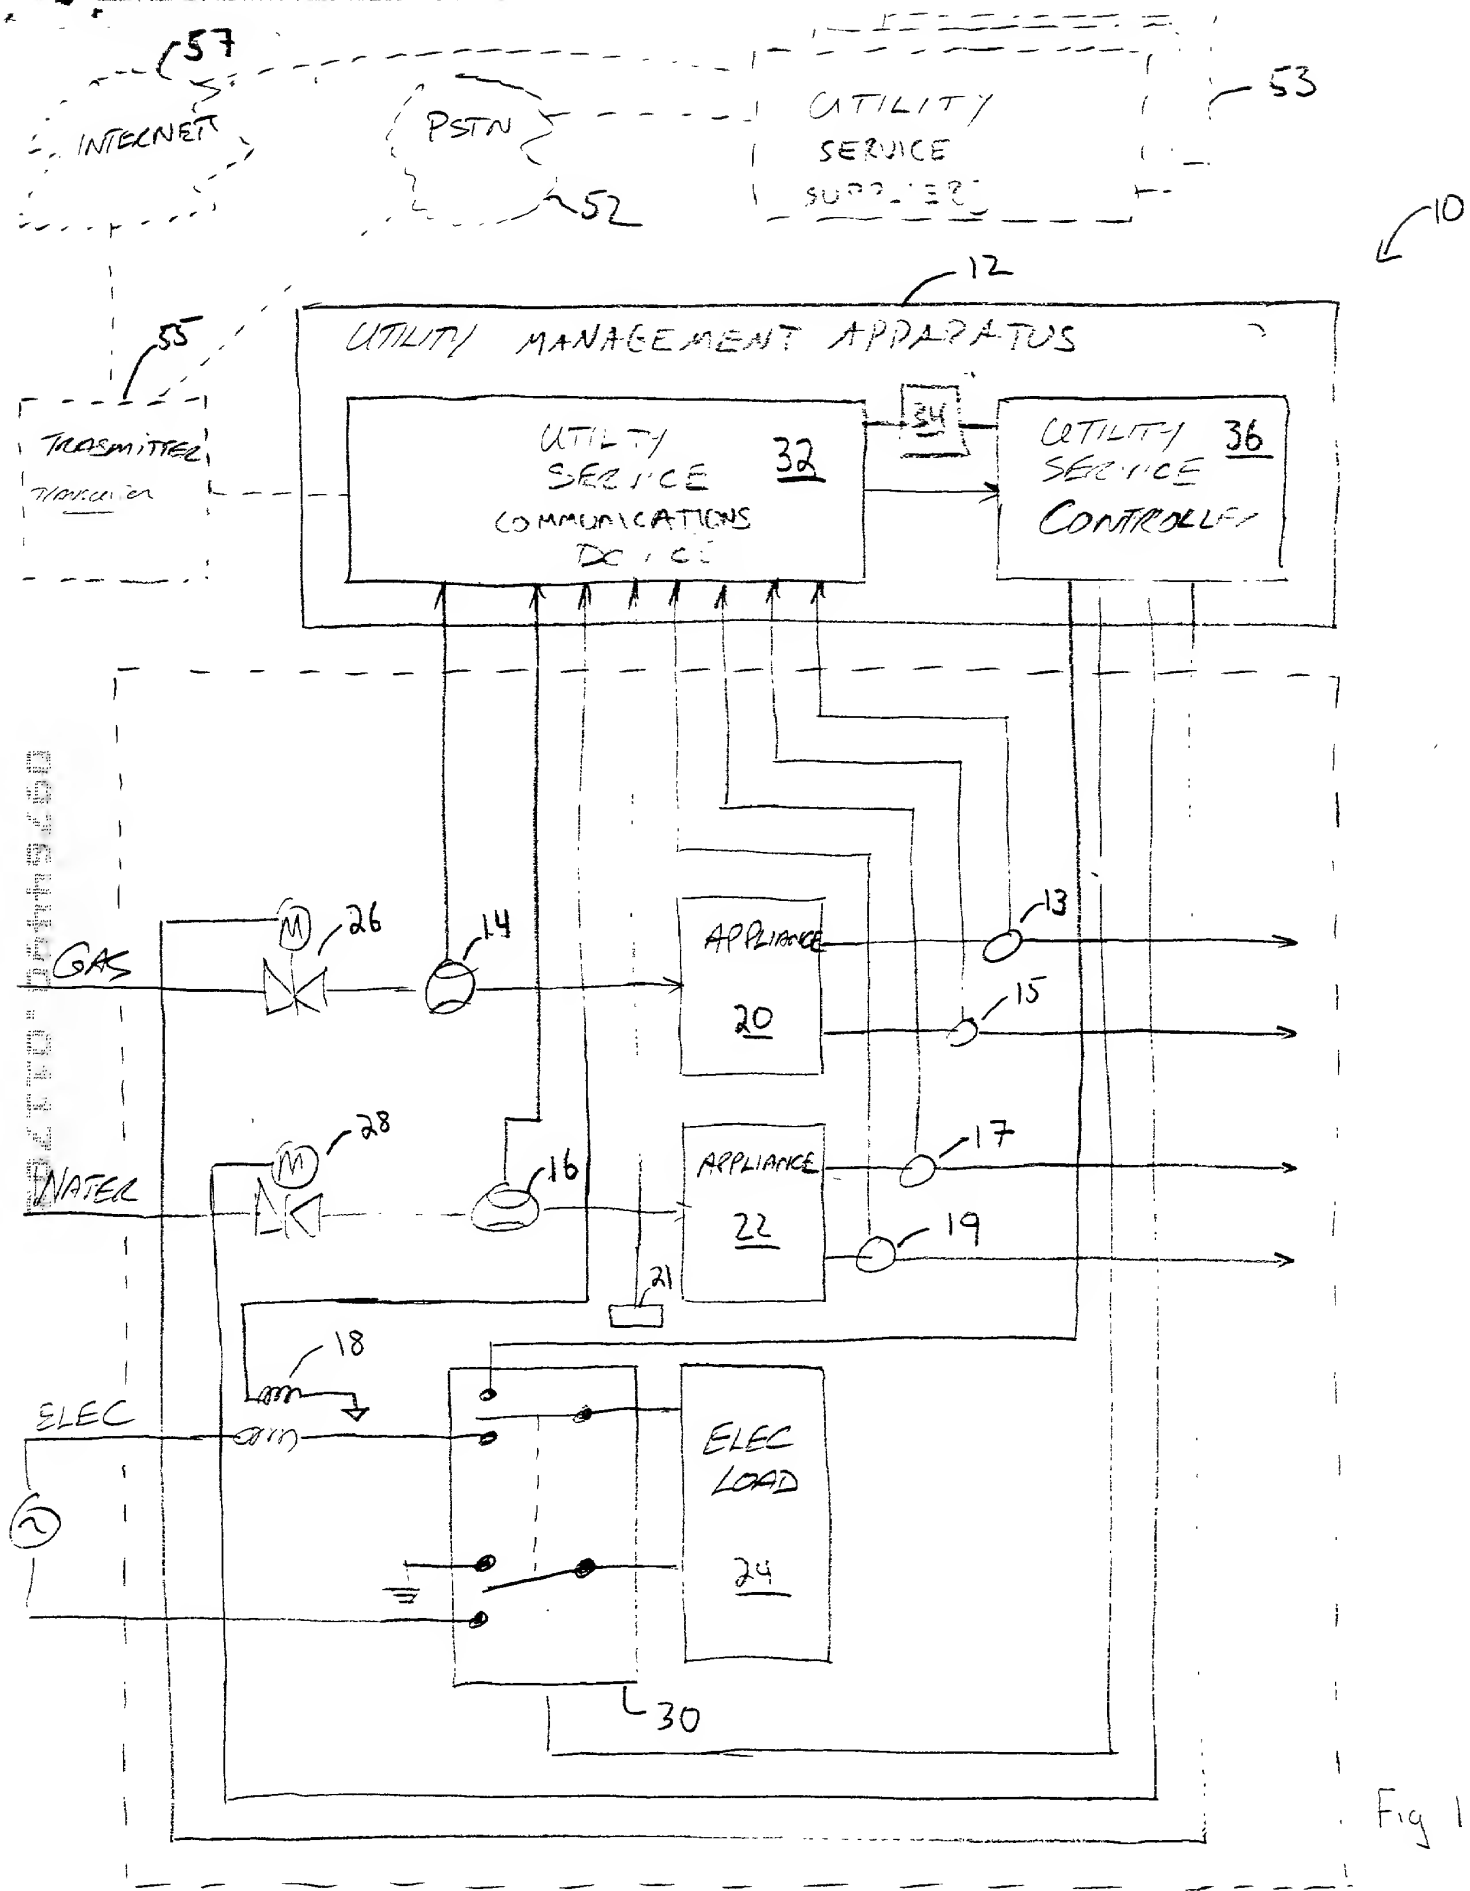 57
INTERNET
PSTN
52
UTILITY
SERVICE
SUPPLIER
53
10
12
UTILITY MANAGEMENT APPARATUS
55
TRASMITTER
UTILITY
SERVICE
COMMUNICATIONS
DEVICE
32
34
UTILITY
SERVICE
CONTROLLER
36
GAS
M
26
14
APPLIANCE
20
13
15
WATER
M
28
16
APPLIANCE
22
17
19
21
18
ELEC
ELEC
LOAD
24
30
Fig 1